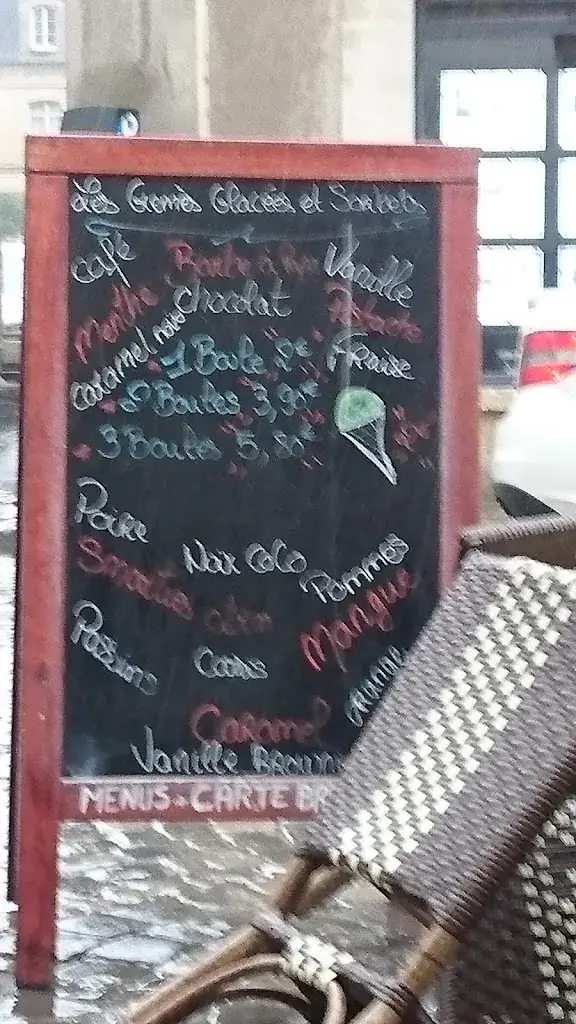 Les Cremès Glacées et Sorbets
Café
Barbe à Papa
Vanille
Menthe
Chocolat
Pistache
Caramel
Fraise
1 Boule "2€"
2 Boules "3,90€"
3 Boules "5,80€"
Poire
Noix Coco
Pommes
Smarties
citron
Mangue
Passions
Cassis
Caramel
Vanille BROWN
MENUS - CARTE BR